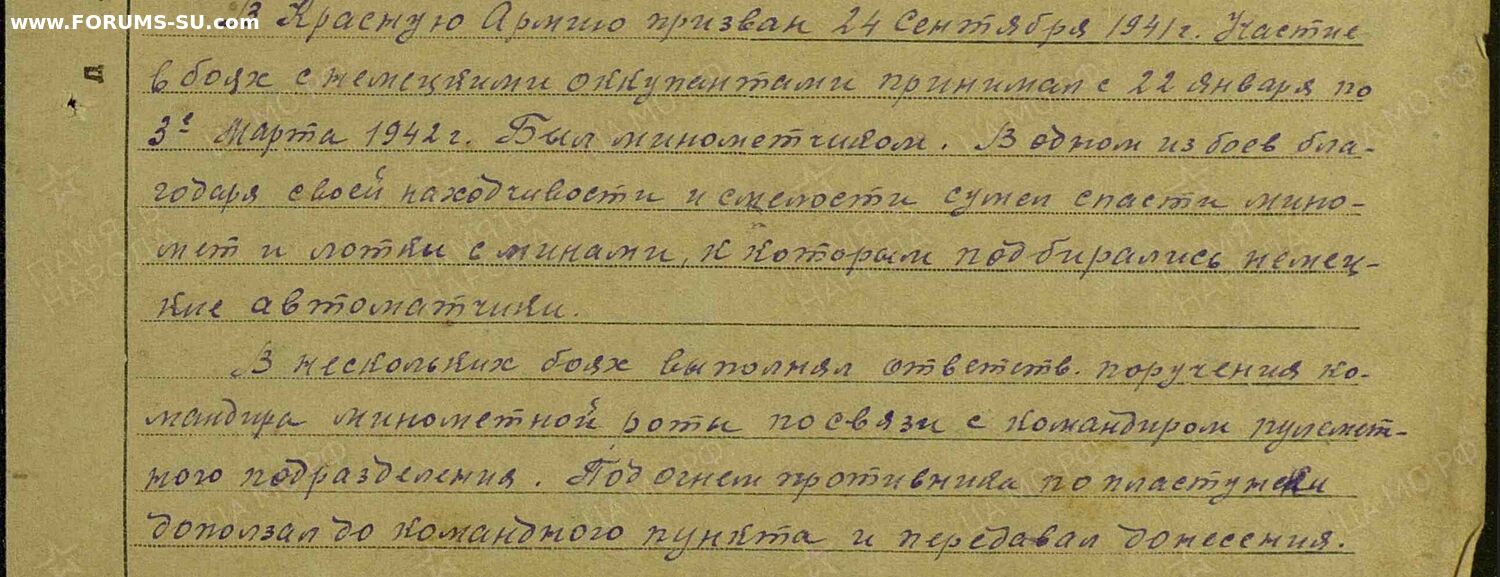 www.FORUMS-SU.com
В Красную Армию призван 24 Сентября 1941г. Участие
в боях с немецкими оккупантами принимал с 22 января по
3е Марта 1942г. Был минометчиком. В одном из боев бла-
годаря своей находчивости и смелости сумел спасти мино-
мет и лотки с минами, к которым подбирались немец-
кие автоматчики.
В нескольких боях выполнял ответств. поручения ко-
мандира минометной роты по связи с командиром пулемет-
ного подразделения. Под огнем противника по пластунски
доползал до командного пункта и передавал донесения.
Д